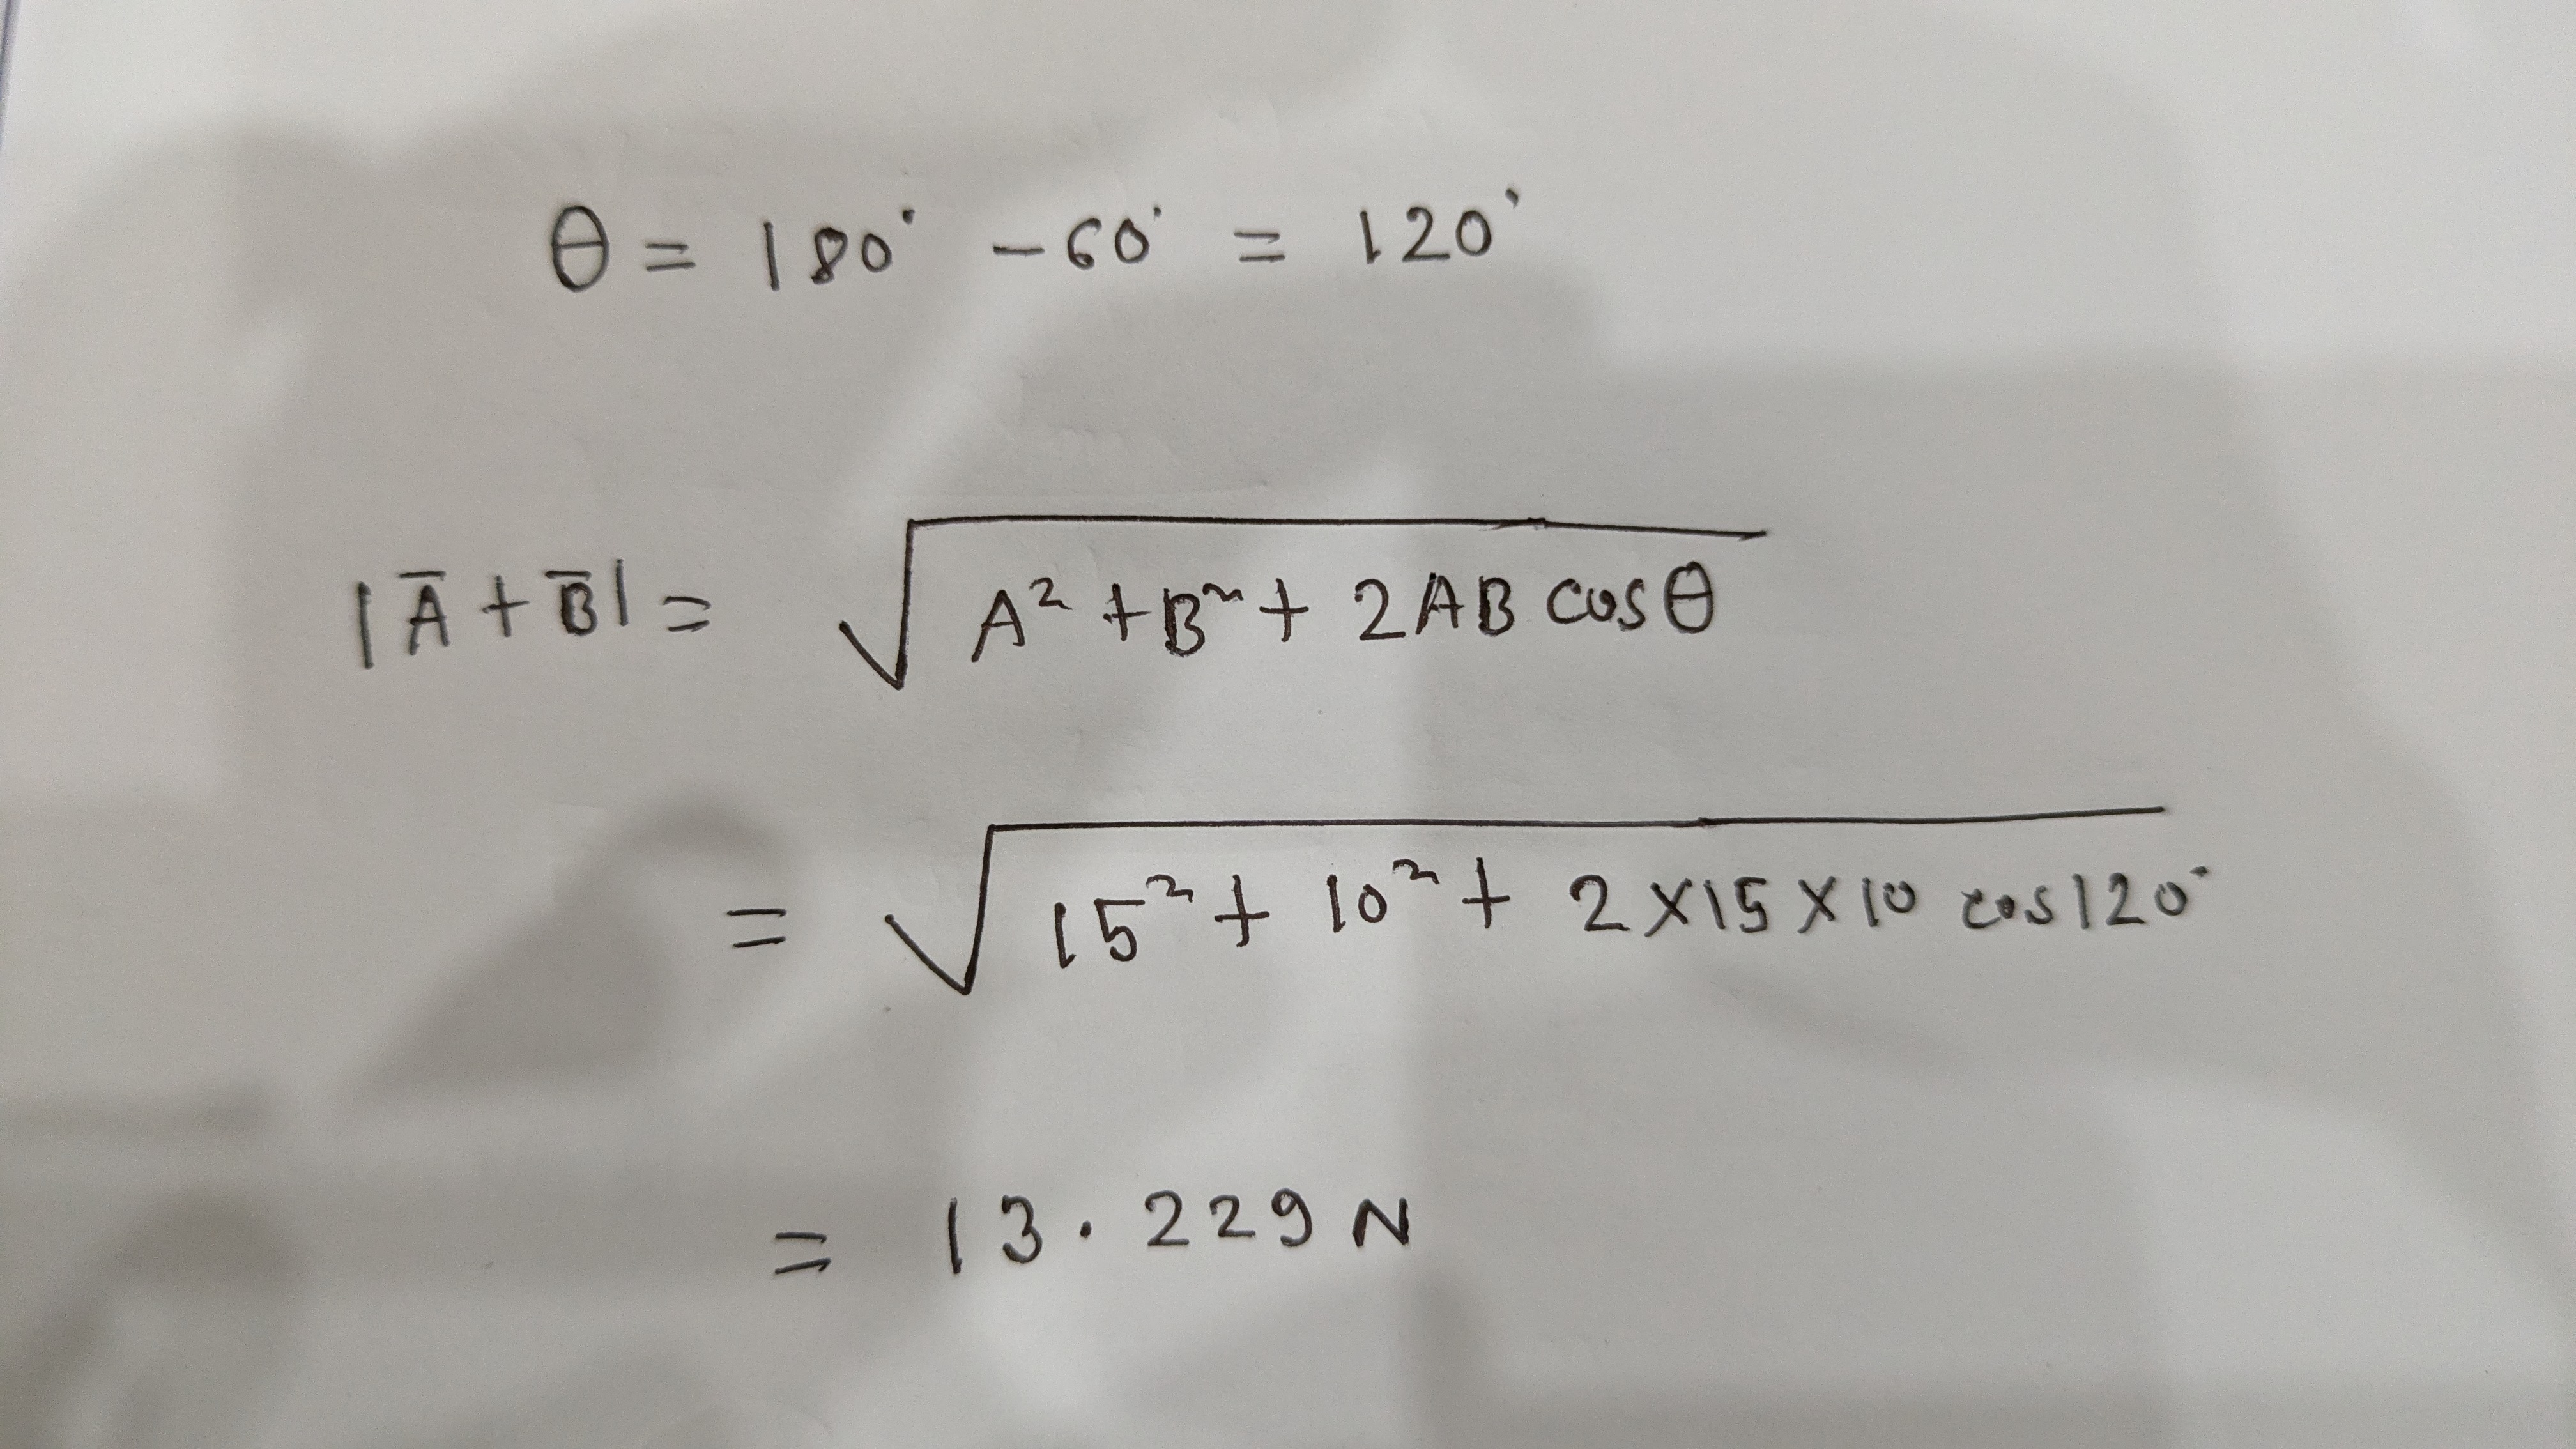 θ = 180° - 60° = 120°
|A̅ + B̅| = √(A² + B² + 2AB cosθ)
= √(15² + 10² + 2 × 15 × 10 cos120°)
= 13.229 N